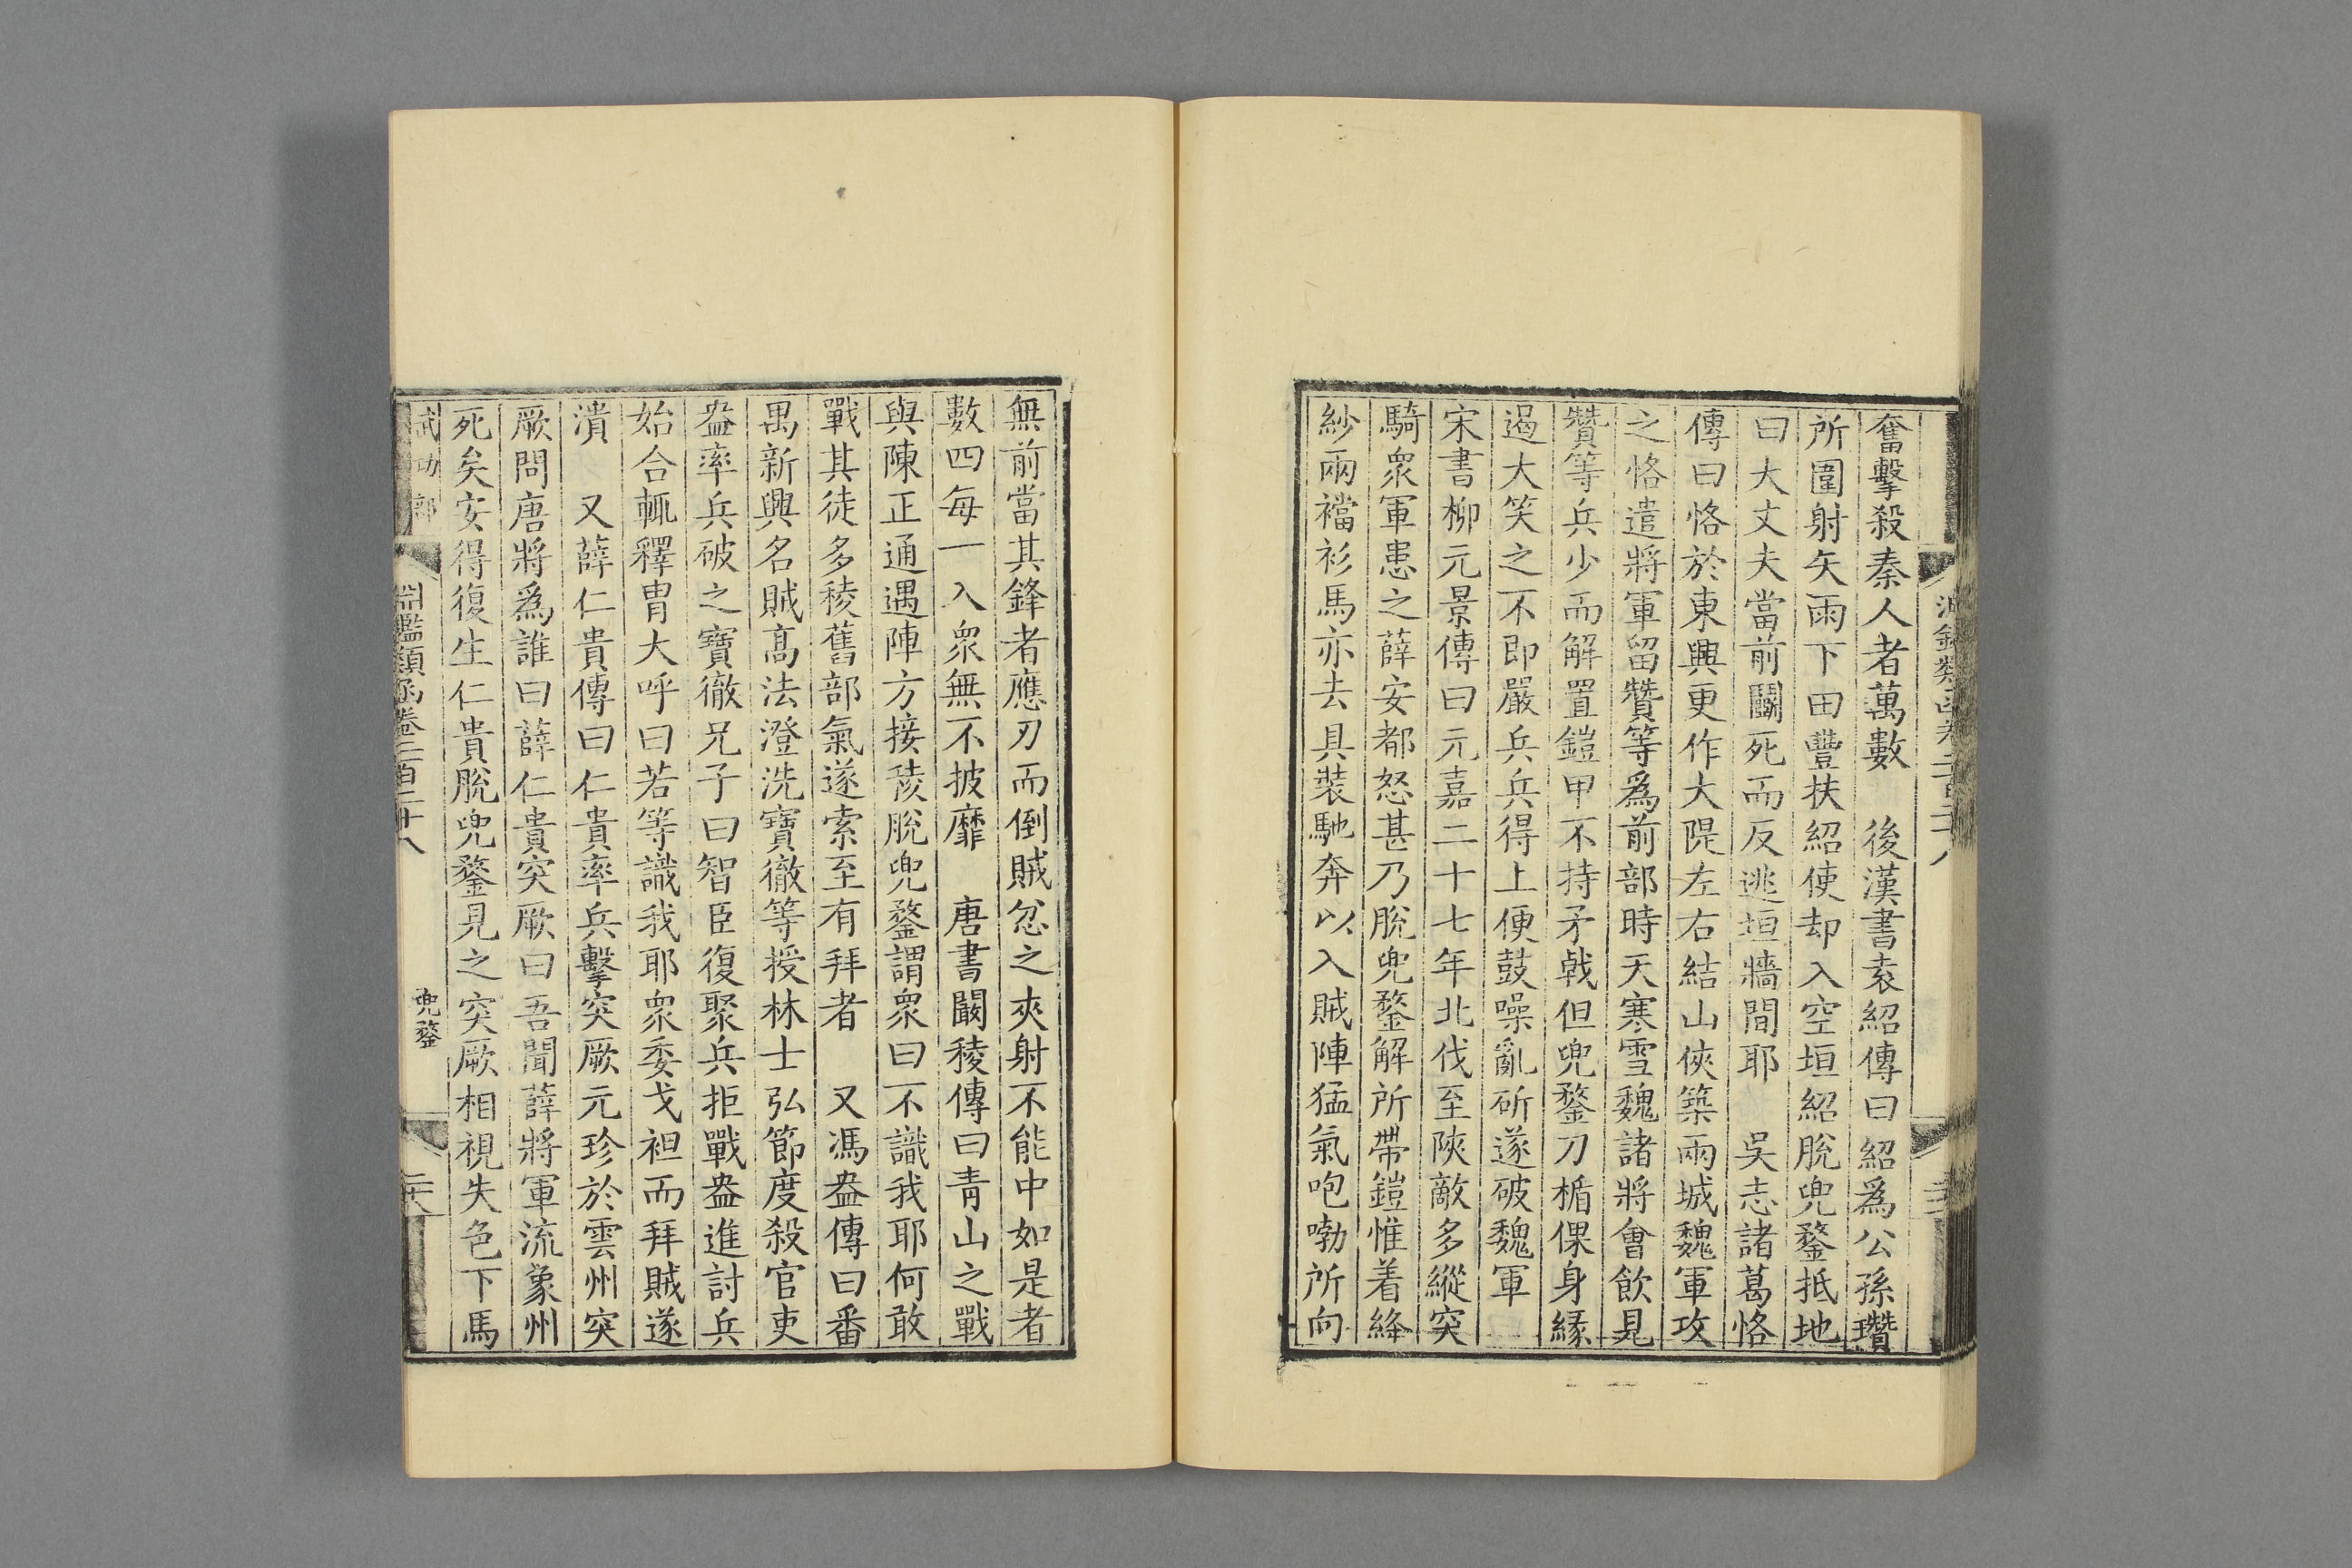 奮擊殺秦人者萬數　後漢書袁紹傳曰紹爲公孫瓚
所圍射矢雨下田豐扶紹使却入空垣紹脫兜鍪抵地
曰大丈夫當前鬭死而反逃垣牆間耶　吳志諸葛恪
傳曰恪於東興更作大隄左右結山俠築兩城魏軍攻
之恪遣將軍留贊等爲前部時天寒雪魏諸將會飲見
贊等兵少而解置鎧甲不持矛戟但兜鍪刀楯倮身緣
遏大笑之不即嚴兵兵得上便鼓噪亂斫遂破魏軍
宋書柳元景傳曰元嘉二十七年北伐至陝敵多縱突
騎衆軍患之薛安都怒甚乃脫兜鍪解所帶鎧惟着絳
紗兩襠衫馬亦去具裝馳奔以入賊陣猛氣咆㘄所向
無前當其鋒者應刃而倒賊忿之夾射不能中如是者
數四每一入衆無不披靡　唐書闞稜傳曰青山之戰
與陳正通遇陣方接稜脫兜鍪謂衆曰不識我耶何敢
戰其徒多稜舊部氣遂索至有拜者　又馮盎傳曰番
禺新興名賊高法澄洗寶徹等授林士弘節度殺官吏
盎率兵破之寶徹兄子曰智臣復聚兵拒戰盎進討兵
始合輒釋胄大呼曰若等識我耶衆委戈袒而拜賊遂
潰　又薛仁貴傳曰仁貴率兵擊突厥元珍於雲州突
厥問唐將爲誰曰薛仁貴突厥曰吾聞薛將軍流象州
死矣安得復生仁貴脫兜鍪見之突厥相視失色下馬
武功部　淵鑑類函卷二百二十八　兜鍪